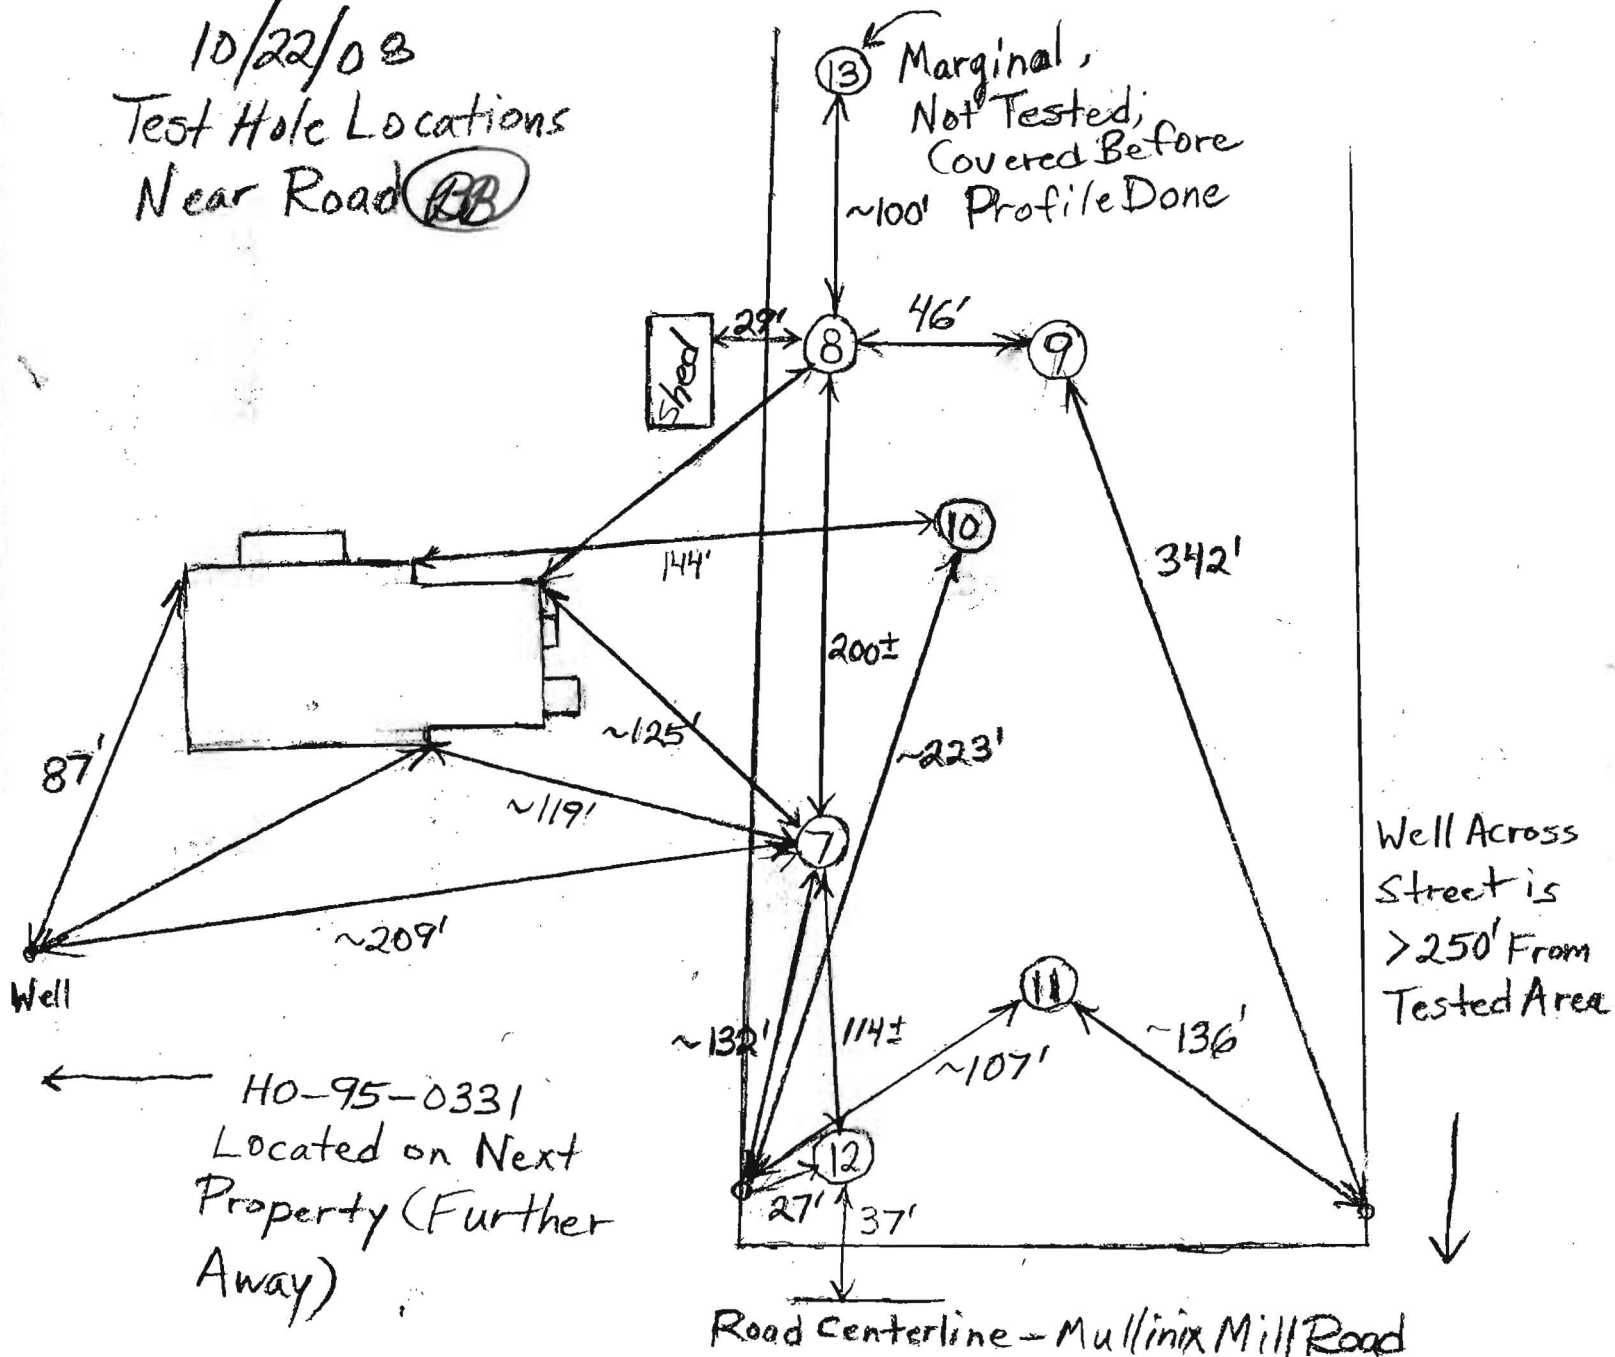 10/22/08
Test Hole Locations
Near Road BB
13
Marginal,
Not Tested;
Covered Before
Profile Done
~100'
Shed
29'
8
46'
9
10
144'
342'
200±
~125'
~223'
87'
~119'
7
~209'
Well
Well Across
Street is
>250' From
Tested Area
11
~132'
114±
~107'
~136'
HO-95-0331
Located on Next
Property (Further
Away)
12
27'
37'
Road Centerline - Mullinix Mill Road